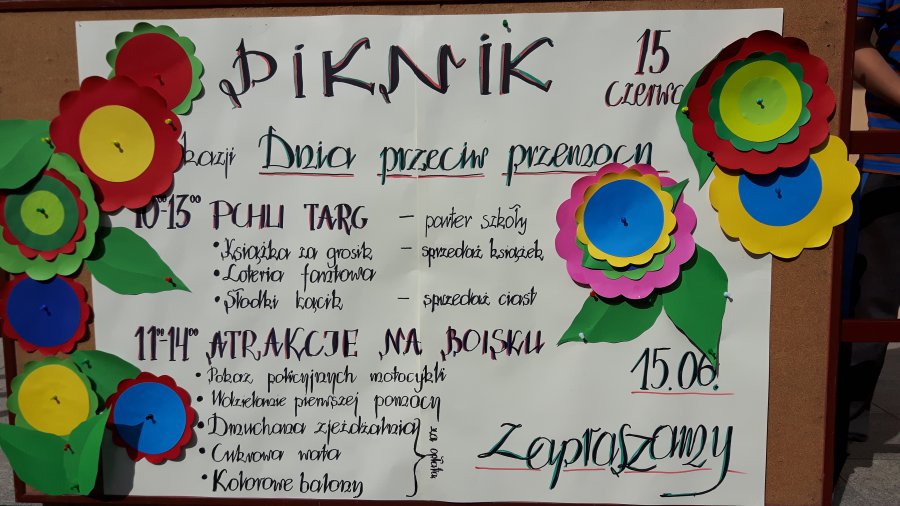 PIKNIK
15
czerwc
okazji Dnia przeciw przemocy
10⁰⁰-13⁰⁰ PCHLI TARG – parter szkoły
• Książka za grosik – sprzedaż książek
• Loteria fantowa
• Słodki kącik – sprzedaż ciast
11⁰⁰-14⁰⁰ ATRAKCJE NA BOISKU
• Pokaz policyjnych motocykli
• Udzielanie pierwszej pomocy
• Dmuchana zjeżdżalnia
• Cukrowa wata
• Kolorowe balony
za opłatą
15.06.
Zapraszamy